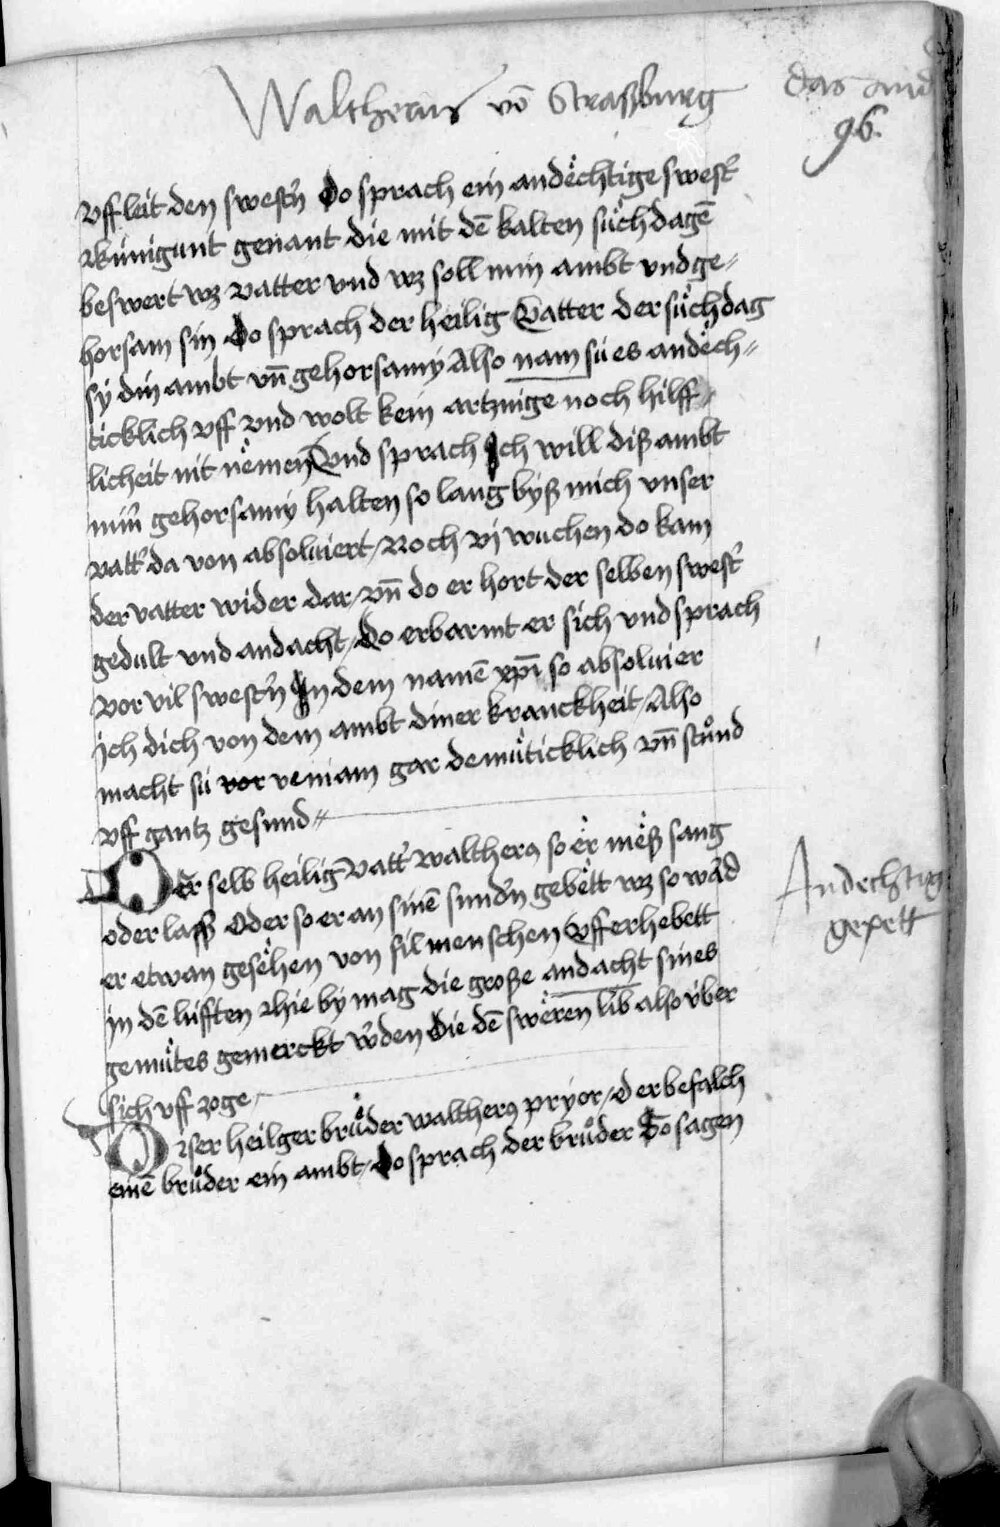 Waltherus vō Straßburg
das and
96.
vff leit den swestn̄ Do sprach ein andẻchtige swest᷑
kúnigunt genant die mit dē kalten sùchdagē
beswert wz vatter vnd wz soll min ambt vnd ge⸗
horsam sin Do sprach der heilig Vatter der sùchdag
sy din ambt vn̄ gehorsamy Also nam sú es andẻch⸗
ticklich vff vnd wolt kein artznige noch hilff⸗
licheit nit nẻmen Vnd sprach Ich will diß ambt
min᷑ gehorsamy halten so lang byß mich vnser
vatt᷑ da von absoluiert / Noch vj wuchen do kam
der vatter wider dar / vn̄ do er hort der selben swest᷑
gedult vnd andacht / Do erbarmt er sich vnd sprach
vor vil swest᷑n In dem namē xp̄i so absoluier
ich dich von dem ambt diner kranckheit / Also
macht sú vor veniam gar demùticklich vn̄ stůnd
vff gantz gesund⸗
Der selb heilig Vatt᷑ Waltherꝰ so er mẻß sang
oder laß Oder so er an sinē sund᷑n gebẻtt wz so wa᷑d
er etwan gesẻhen von fil menschen Vff erhebett
in dē lúfften Hie by mag die große andacht sines
gemùtes gemerckt w᷑den die dē swẻren lib also v́ber
sich vff zoge
Andechtig
gepett
Diser heilger brůder Waltherꝰ pryor / der befalch
einē brůder ein ambt / Do sprach der brůder So sagen